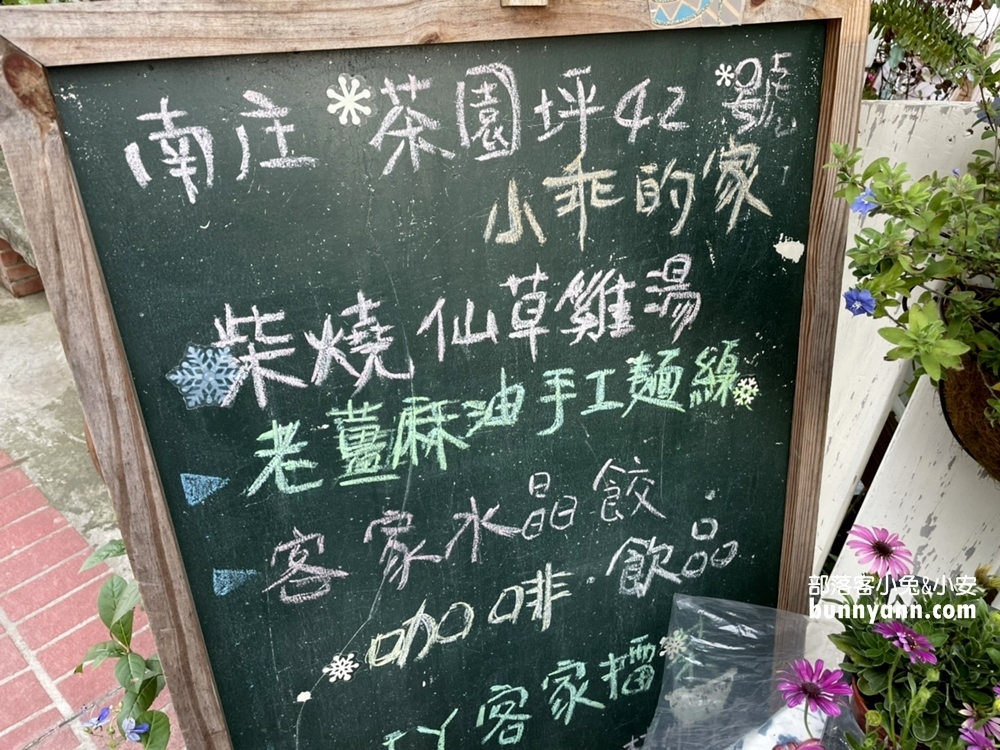 南庄 茶園坪42號
小乖的家
柴燒仙草雞湯
老薑麻油手工麵線
客家水晶餃
咖啡·飲品
客家擂
部落客小兔&小安
bunnyann.com